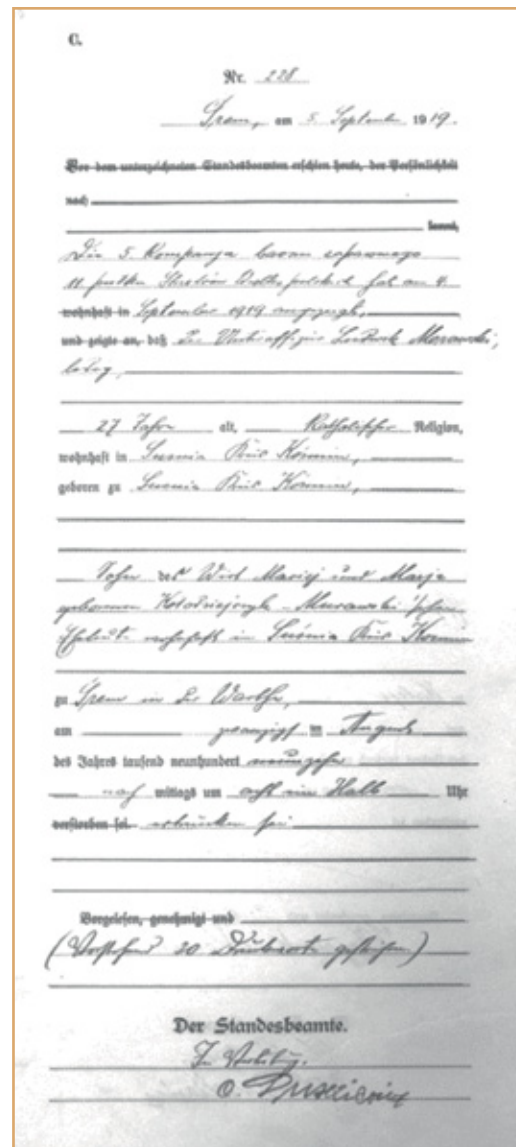 C.
Nr. 228
Śrem, am 5. September 1919.
Vor dem unterzeichneten Standesbeamten erschien heute, der Persönlichkeit
nach
kannt,
Die 5. Kompanja baonu zapasowego
11 pułku Strzelców Wielkopolskich hat am 4.
wohnhaft in September 1919 angezeigt,
und zeigte an, daß der Unteroffizier Ludwik Murawski,
ledig,
27 Jahre alt, Katholischer Religion,
wohnhaft in Kreis
geboren zu Kreis
Sohn des Wirt Maciej und Marja
geborenen Murawski'schen
Eheleute wohnhaft in Kreis
zu Śrem in der Warthe,
am zwanzigsten August
des Jahres tausend neunhundert neunzehn
nach mittags um acht ein Halb Uhr
verstorben sei. ertrunken sei
Vorgelesen, genehmigt und
(Vorstehend 20 Druckworte gestrichen)
Der Standesbeamte.
In Vertretung.
O.